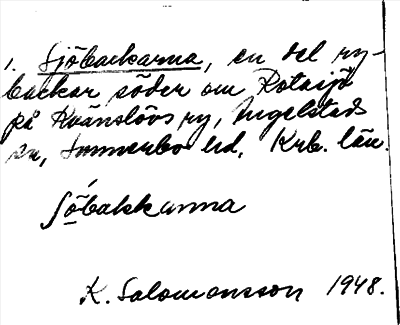 1. Sjöbackarna, en del ry-
backar söder om Rotasjö
på Kvänslövs ry, Angelstads
sn, Sunnerbo hd. Krb. län.
Söbakkanna
K. Salomonsson 1948.